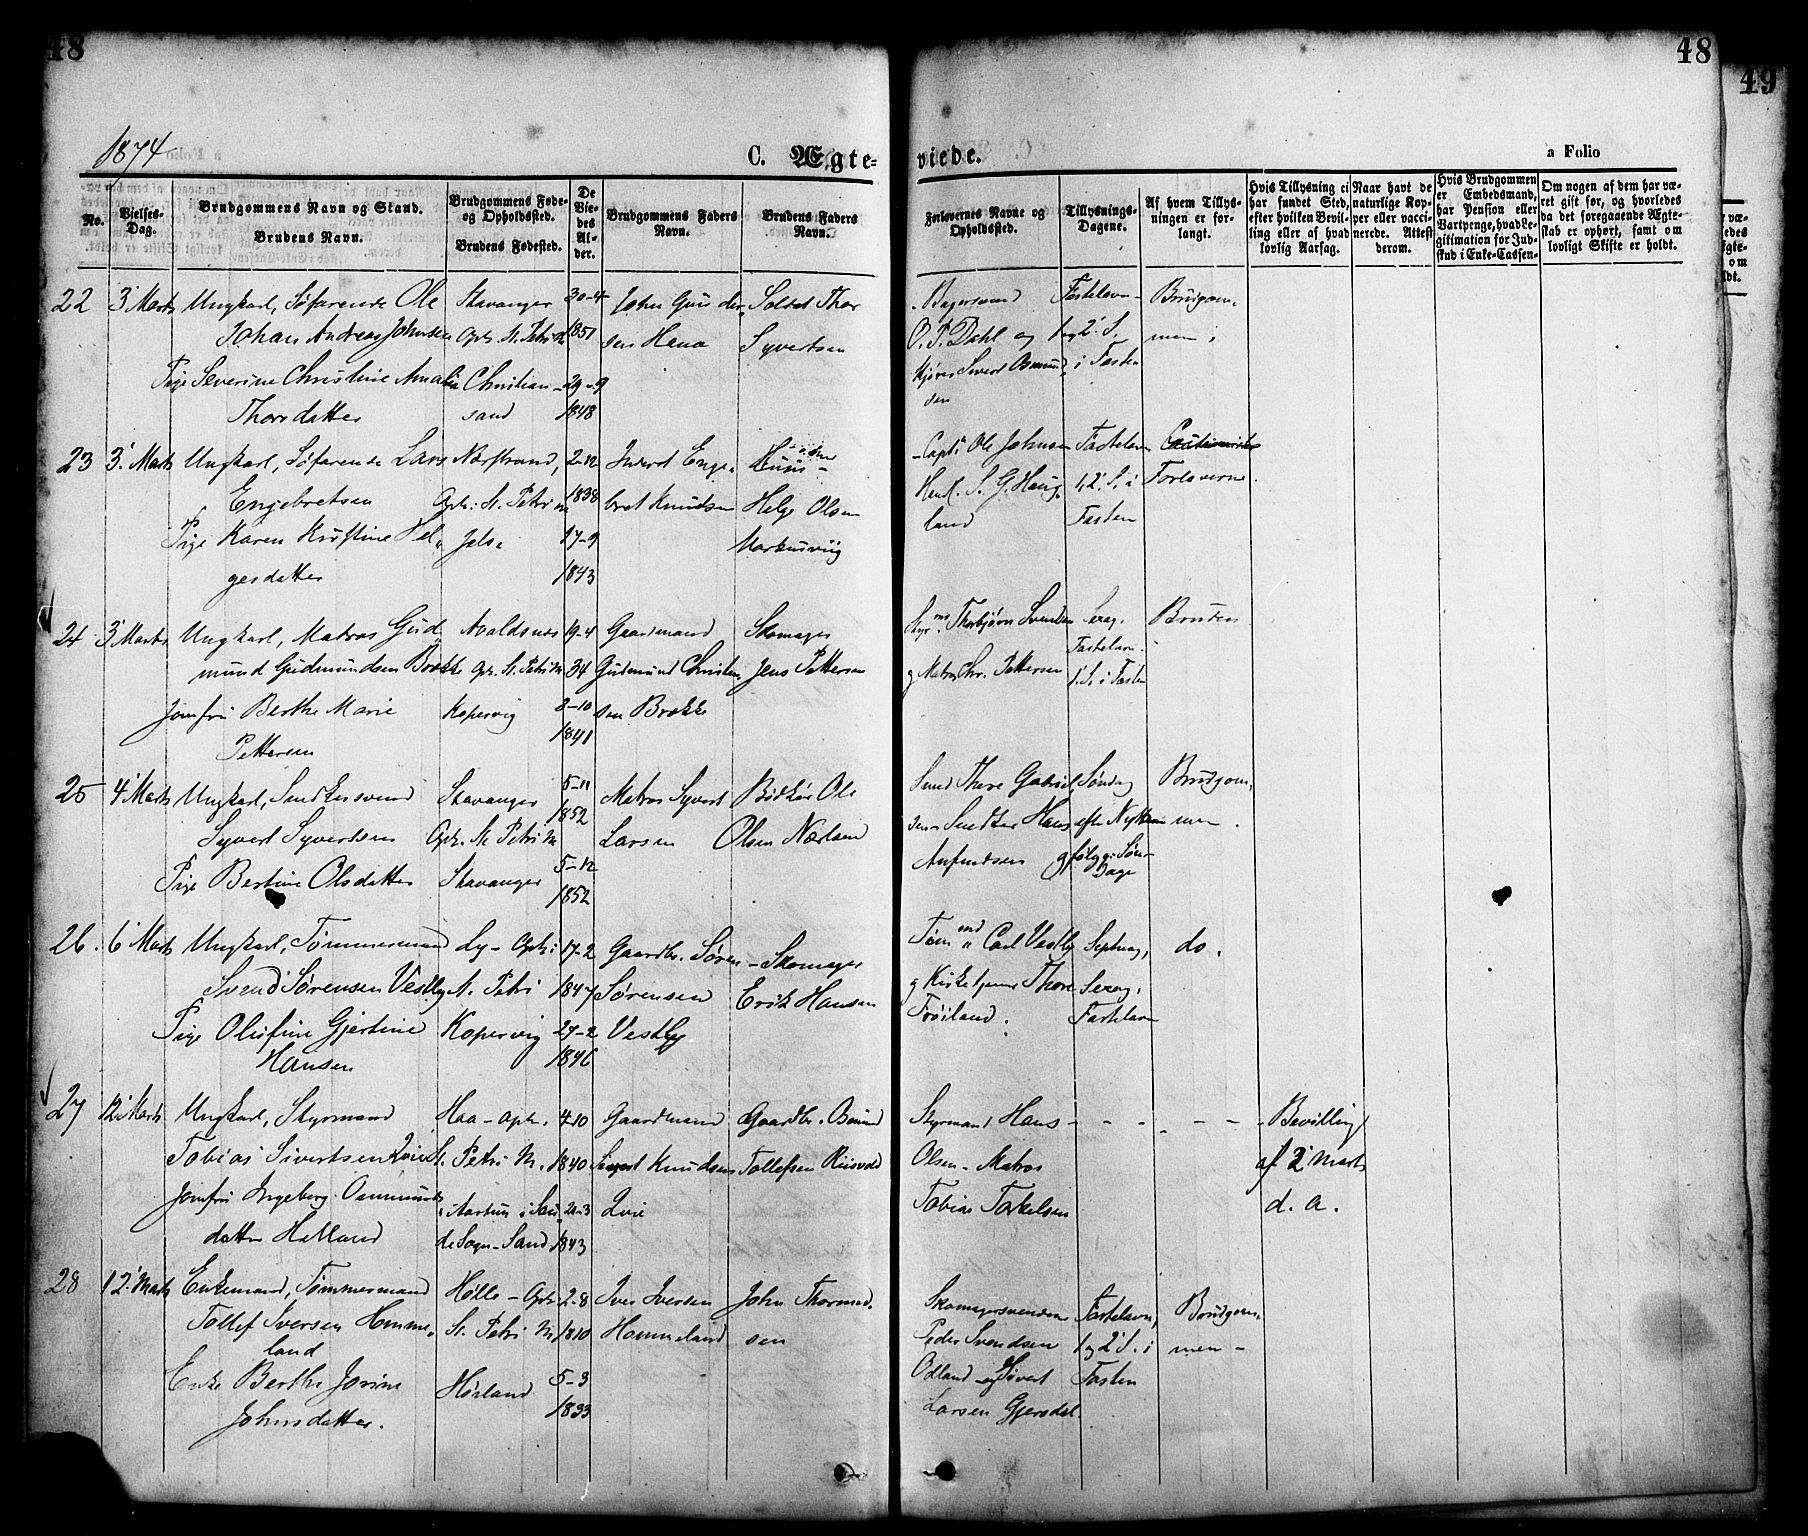 48
48
49
1874
C. Ægte-
viede.
a Folio
No.
Vielses-Dag.
Brudgommens Navn og Stand.
Brudens Navn.
Brudgommens Føde- og Opholdssted.
Brudens Fødested.
De Viedes Alder.
Brudgommens Faders Navn.
Brudens Faders Navn.
Forlovernes Navne og Opholdssted.
Tillysnings-Dagene.
Af hvem Tillysningen er forlangt.
Hvis Tillysning ei har fundet Sted, efter hvilken Bevilling eller af hvad lovlig Aarsag.
Naar havt de naturlige Kopper eller vaccinerede. Attest derom.
Hvis Brudgommen er Embedsmand, har Pension eller Vartpenge, hvad Legitimation for Indskud i Enke-Cassen.
Om nogen af dem har været gift før, og hvorledes da det foregaaende Ægteskab er ophørt, samt om lovligt Skifte er holdt.
22 3' Marts Ungkarl, Søfarende Ole Stavanger 30-4 John Gunder Soldat Thor
Johan Andreas Johnsen Oph. St. Petri M 1851 sen Hana Syvertsen
Pige Severine Christine Amalia Christian- 29-9
Thorsdatter sand 1848
O. P. Dahl og 1 og 2' S. men
Kjører Sivert Osmund i Fasten
sen
Fastelavn- Brudgom
23 3' Marts Ungkarl, Søfarende Lars Narstrand, 2-12 Inderst Enge
Engebretsen Oph: St. Petri M 1838 bret Knudsen Helge Olsen
Pige Karen Kristine Hel Jels 17-9 Markusviig
gesdatter 1843
Capt: Ole Johnsen Fastelavn
S. G. Haug 1, 2' S. i Forloverne.
land Fasten
24 3' Marts Ungkarl, Matros Gud Avaldsnes 19-4 Gaardmand Skomager
mund Gudmundsen Brække Oph. St. Petri M 34 Gudmund Christen Jens Pettersen
Jomfru Berthe Marie Kopervig 8-10 sen Brække
Pettersen 1841
Styrm. Thorbjørn Svendsen Sexag. Bruden
Fastelavn.
g Matros Chr. Pettersen 1. S. i Fasten
25 4' Marts Ungkarl, Snedkersvend Stavanger 5-11 Matros Syvert Bødker Ole
1852
Syvert Syvertsen Oph. St. Petri M Larsen Olsen Nærland
Pige Bertine Olsdatter Stavanger 5-12
1852
Smed Thore Gabriel Søndag Brudgom
sen Snedker Hans efter Nytaar men.
Anfindsen g følg. Søn-
Dage
26. 6' Marts Ungkarl, Tømmermand Ly- Oph: 17-2 Gaardbr. Søren Skomager
Svend Sørensen Vestly St. Petri 1847 Sørensen Erik Hansen
Pige Olufine Gjertine Kopervig 27-2 Vestly
Hansen 1846
Tømmd Carl Vestly Septuag, do.
g Kirketjener Thore Sexag,
Frøiland. Fastelavn
27 12' Marts Ungkarl, Styrmand Haa- Oph. 4-10 Gaardmand Gaardbr.
Tobias Sivertsen St. Petri M. 1840 Sivert Knudsen Tollefsen
Jomfru Ingeborg Osmunds 20-3
datter Helland de Sogn- Sand, 1843
Styrmand Hans - - - - - - Bevilling
Olsen- Matros af 2' Marts
Tobias Torkelsen d. a.
28 12' Marts Enkemand, Tømmermand Hølle- Oph: 2-8 Iver Iversen John Thormod
Tollef Iversen Homme St. Petri M. 1810 Hommeland sen
land
Enke Berthe Jorine Høiland 5-3
Johnsdatter. 1833
Skomagersvendene Fastelavn, Brudgom
Peder Svendsen 1 og 2' S. i men-
Odland og Sivert Fasten
Larsen Gjersdal